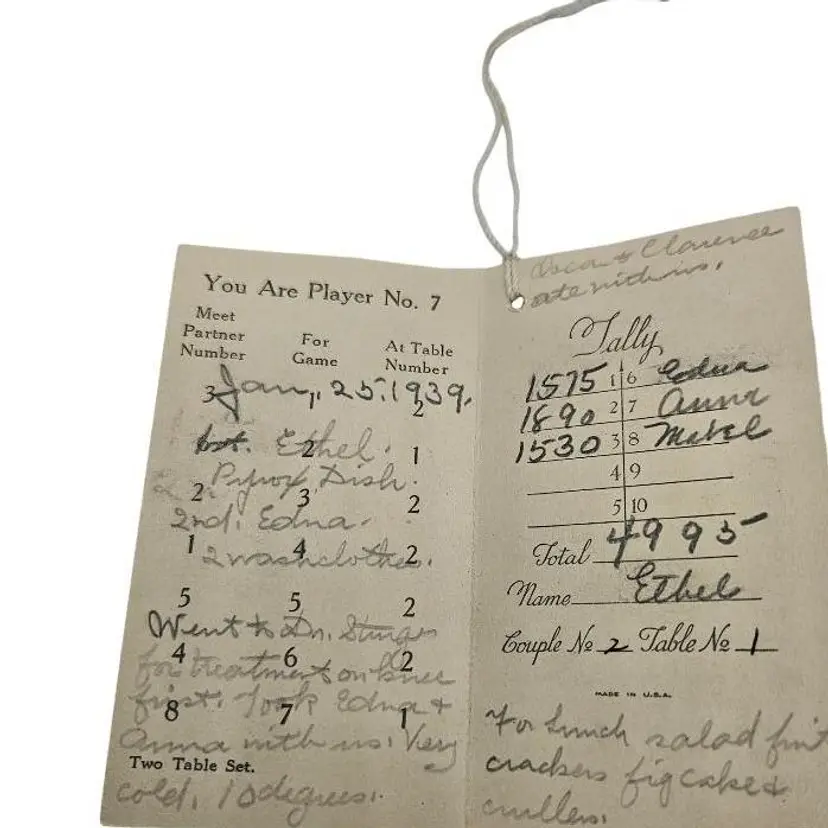 You Are Player No. 7
Meet
Partner
Number
For
Game
At Table
Number
3 1 2
Jan, 25, 1939.
2 1
1st. Ethel.
Pyrex Dish.
2 3 2
2nd. Edna.
1 4 2
2 washclothes.
5 5 2
Went to Dr.
4 6 2
for treatment on knee
first. Took Edna +
8 7 1
Anna with us. Very
Two Table Set.
cold. 10 degrees.
Oscar + Clarence
ate with us.
Tally
1575 1 6 Edna
1890 2 7 Anna
1530 3 8 Mabel
4 9
5 10
Total 4995
Name Ethel
Couple No 2 Table No 1
MADE IN U.S.A.
For lunch salad fruit
crackers fig cake +
crullers.